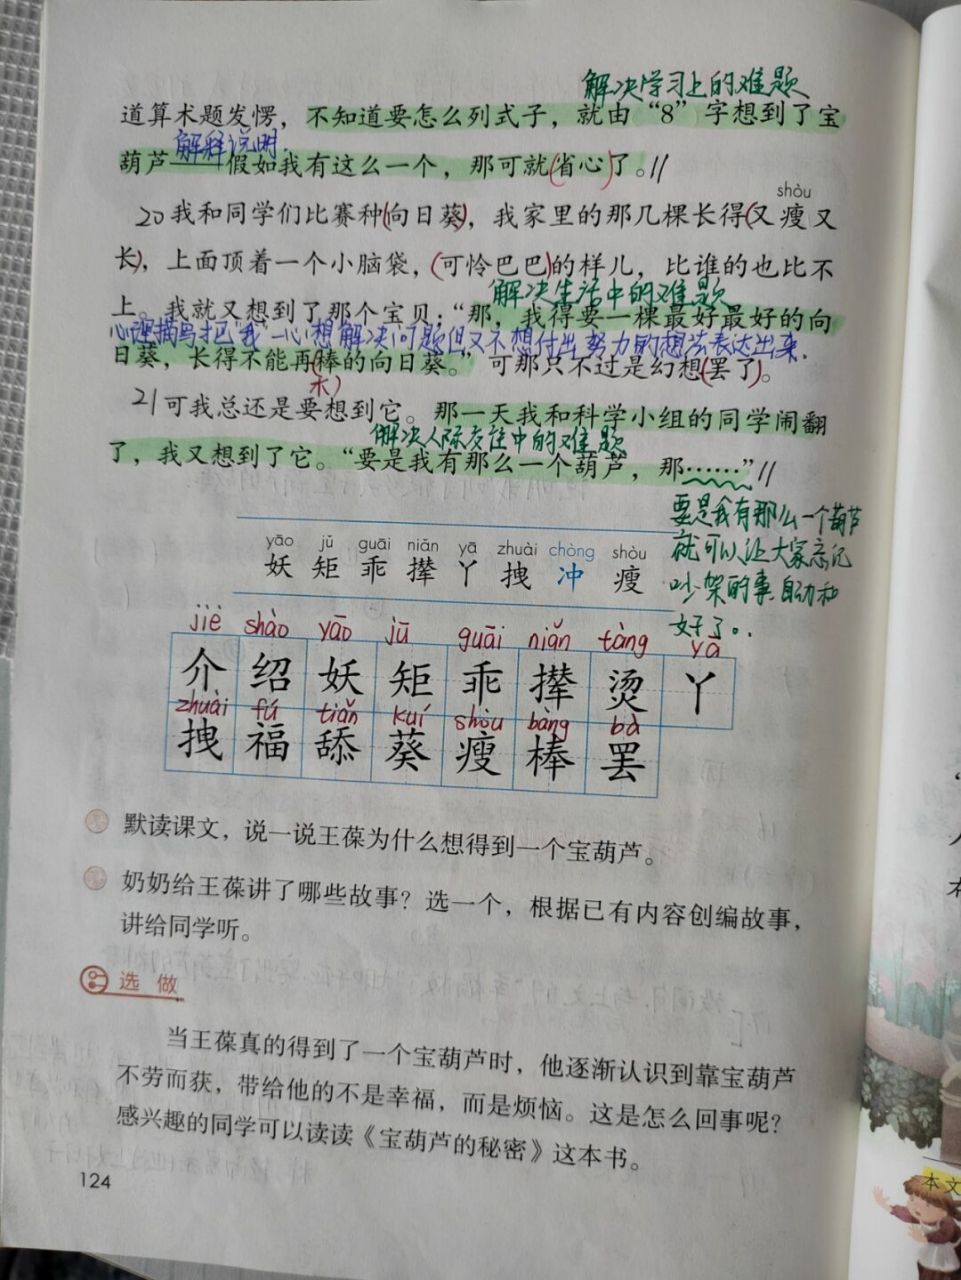 解决学习上的难题
道算术题发愣，不知道要怎么列式子，就由“8”字想到了宝
解释说明.
葫芦——假如我有这么一个，那可就(省心)了。//
shòu
20我和同学们比赛种(向日葵)，我家里的那几棵长得(又瘦又
长)，上面顶着一个小脑袋，(可怜巴巴)的样儿，比谁的也比不
解决生活中的难题
上。我就又想到了那个宝贝：“那，我得要一棵最好最好的向
心理描写才巴“我”一心想解决问题但又不想付出努力的想法表达出来.
日葵，长得不能再棒的向日葵。”可那只不过是幻想(罢了)。
(木)
21可我总还是要想到它。那一天我和科学小组的同学闹翻
解决人际交往中的难题
了，我又想到了它。“要是我有那么一个葫芦，那……”//
要是我有那么一个葫芦
就可以让大家忘记
吵架的事.自动和
好了。.
yāo jǔ guāi niǎn yā zhuài chòng shòu
妖 矩 乖 撵 丫 拽 冲 瘦
jiè shào yāo jǔ guāi niǎn tàng yā
介 绍 妖 矩 乖 撵 烫 丫
zhuài fú tiǎn kuí shòu bàng bà
拽 福 舔 葵 瘦 棒 罢
默读课文，说一说王葆为什么想得到一个宝葫芦。
奶奶给王葆讲了哪些故事？选一个，根据已有内容创编故事，
讲给同学听。
选做
当王葆真的得到了一个宝葫芦时，他逐渐认识到靠宝葫芦
不劳而获，带给他的不是幸福，而是烦恼。这是怎么回事呢？
感兴趣的同学可以读读《宝葫芦的秘密》这本书。
124
本文